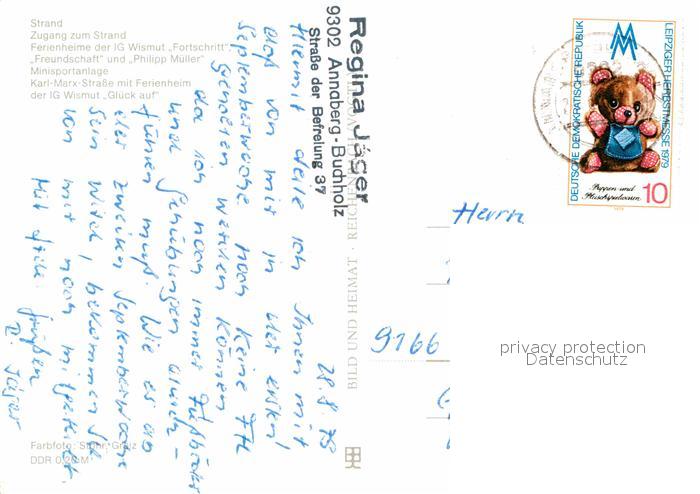 Strand
Zugang zum Strand
Ferienheime der IG Wismut „Fortschritt“,
„Freundschaft“ und „Philipp Müller“
Minisportanlage
Karl-Marx-Straße mit Ferienheim
der IG Wismut „Glück auf“
Farbfoto: Greiz
DDR
BILD UND HEIMAT · REICHENBACH
Regina Jäger
9302 Annaberg-Buchholz
Straße der Befreiung 37
Hiermit teile ich Ihnen mit
daß von mir in der ersten
Septemberwoche noch keine
werden können
da ich noch immer
und
führen muß. Wie es an
der zweiten Septemberwoche
sein wird, bekommen Sie
von mir noch mitgeteilt.
Mit
Grüßen
R. Jäger
Herrn
9166
DEUTSCHE DEMOKRATISCHE REPUBLIK
LEIPZIGER HERBSTMESSE 1979
Puppen und
Plüschspielwaren
10
privacy protection
Datenschutz